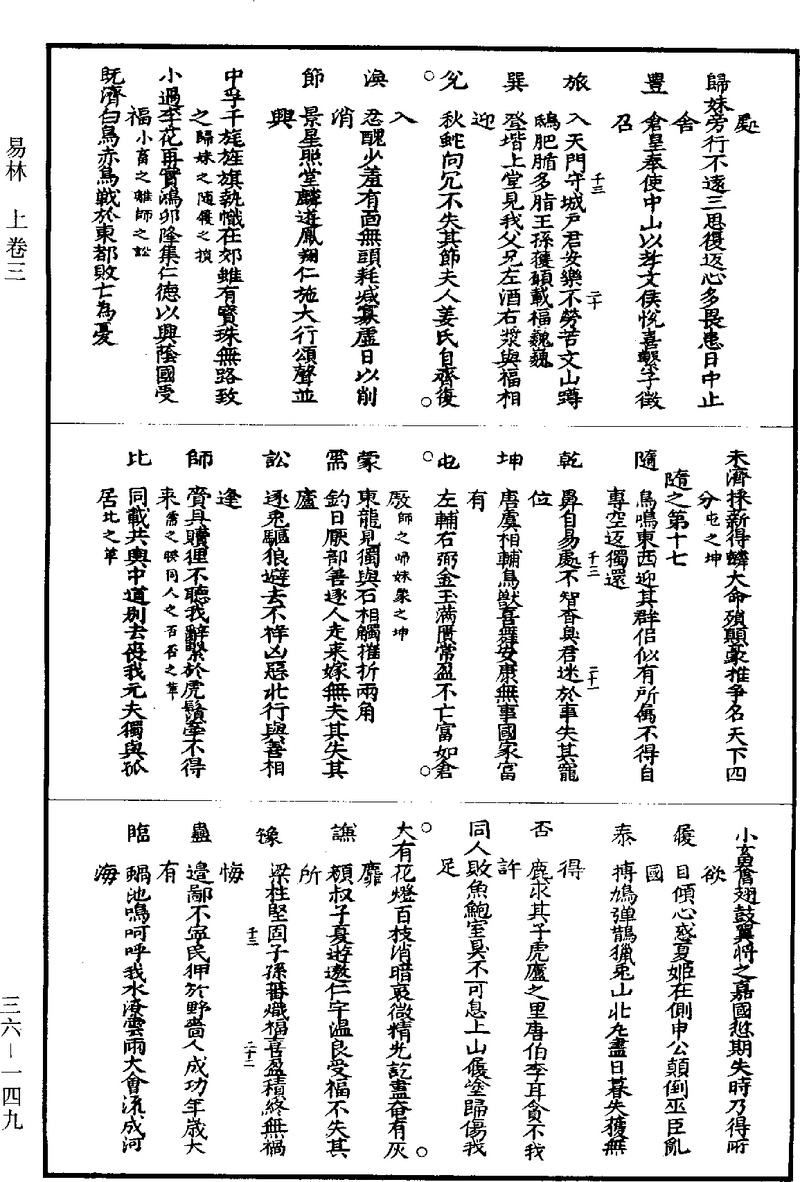 歸妹旁行不遠三思復返心多畏患日中止
處
舍
豐 倉皇奉使中山以孝文侯悅喜繫子徵
召
旅 入天門守城戶君安樂不勞苦文山蹲
鴟肥腯多脂王孫獲願載福巍巍
巽 登堦上堂見我父兄左酒右漿與福相
迎
兌 秋蛇向冗不失其節夫人姜氏自齊復
入
渙 忍醜少羞有面無頭耗減寡虛日以削
消
節 景星照堂麟遊鳳翔仁施大行頌聲並
興
中孚千旄旌旗執幟在郊雖有寶珠無路致
之歸妹之隨履之損
小過李花再實鴻卵降集仁德以興蔭國受
福小畜之離師之訟
既濟白鳥赤鳥戰於東都敗亡為憂
未濟採新得麟大命殞顛豪推爭名天下四
分屯之坤
隨之第十七
隨 鳥鳴東西迎其群侶似有所屬不得自
專空返獨還
乾 鼻自易處不智香臭君迷於事失其寵
位
坤 唐虞相輔鳥獸喜舞安康無事國家富
有
屯 左輔右弼金玉滿匱常盈不亡富如倉
廒師之歸妹蒙之坤
蒙 東龍見獨與石相觸摧折兩角
需 釣日厭部善逐人走來嫁無夫其失其
廬
訟 逐兎驅狼避去不祥凶惡北行與善相
逢
師 齎貝贖狸不聽我辭繫於虎鬚牽不得
來需之睽同人之否否之革
比 同載共輿中道別去喪我元夫獨與孤
居比之革
小畜奮翅鼓翼將之嘉國愆期失時乃得所
欲
履 目傾心惑夏姬在側申公顛倒巫臣亂
國
泰 搏鳩彈鵲獵兎山北丸盡日暮失獲無
得
否 鹿求其子虎廬之里唐伯李耳貪不我
許
同人敗魚鮑室臭不可息上山履塗歸傷我
足
大有花燈百枝消暗衰微精光訖盡奄有灰
靡
謙 顏叔子夏遊遨仁宇溫良受福不失其
所
豫 梁柱堅固子孫蕃熾福喜盈積終無禍
悔
蠱 邊鄙不寧民狎於野嗇人成功年歲大
有
臨 蝸池鳴呵呼我水潦雲雨大會流成河
海
易林 上卷三
三六—一四九